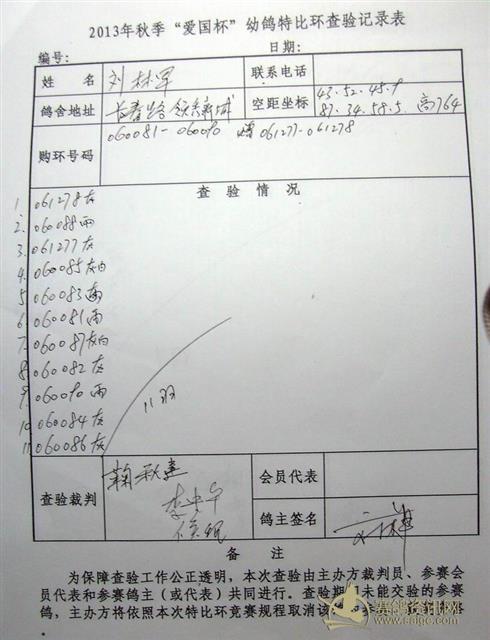 2013年秋季“爱国杯”幼鸽特比环查验记录表
编号: 日期:
姓名 刘林军 联系电话
鸽舍地址 长春路领秀新城 空距坐标 43.52.45.9
87.34.58.5 高764
购环号码 060081-060090 赠 061277-061278
查验情况
1. 061278灰
2. 060088雨
3. 061277灰
4. 060085灰白
5. 060083雨
6. 060081雨
7. 060087灰白
8. 060082灰
9. 060090雨
10. 060084灰
11. 060086灰
11羽
查验裁判 会员代表
鸽主签名
备注
为保障查验工作公正透明，本次查验由主办方裁判员、参赛会
员代表和参赛鸽主（或代表）共同进行。查验期间未能交验的参赛
鸽，主办方将依照本次特比环竞赛规程取消该